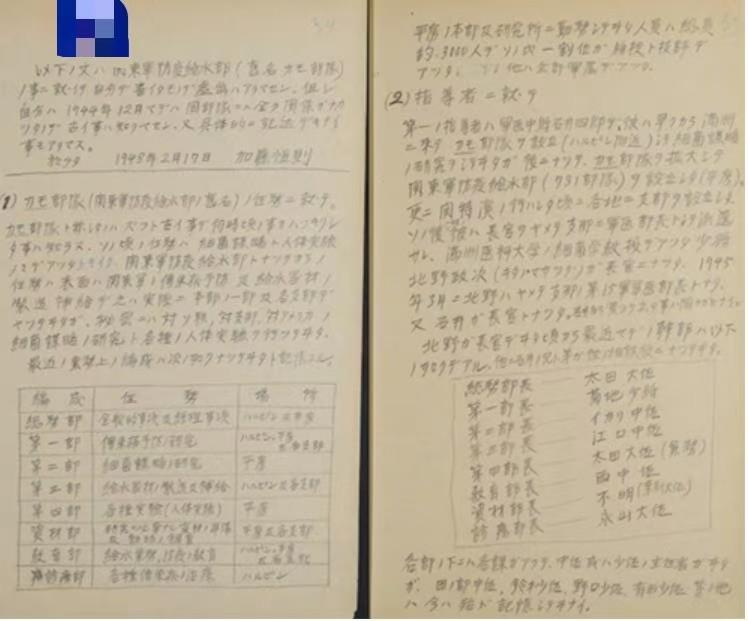 34
以下ノ文ハ関東軍防疫給水部(旧名カモ部隊)
ノ事ニ就イテ自分デ書イタモノデ虚偽ハアリマセン。但シ
自分ハ1944年12月マデハ同部隊ニハ全ク関係ガナカ
ツタノデ古イ事ハ知リマセン。又具体的ニ記述デキナイ
事モアリマス。
1948年2月17日 加藤恒則
(1) カモ部隊(関東軍防疫給水部ノ旧名)ノ任務ニ就テ。
カモ部隊ト称シタノハズツト古イ事デ何時頃ノ事カハツキリシ
タ事ハ知ラヌ。ソノ頃ノ任務ハ細菌謀略ト人体実験
関東軍防疫給水部トナツテカラノ
任務ハ表面ハ関東軍ノ伝染病予防及給水器材ノ
製造補給デ之ハ実際ニ本部ノ一部及各支部デ
ヤツテヰタガ、秘密ニハ対ソ聯、対支那、対アメリカノ
細菌謀略ノ研究ト各種ノ人体実験ヲ行ツテヰタ。
最近ノ業務上ノ編成ハ次ノ如クナツテヰタト記憶スル。
編成 任務 場所
総務部 全般的事項及経理事項 ハルピン及平房
第一部 伝染病予防ノ研究 ハルピン、平房及各支部
第二部 細菌謀略ノ研究 平房
第三部 給水器材ノ製造及補給 ハルピン及各支部
第四部 各種実験(人体実験) 平房
資材部 平房及各支部
教育部 給水業務、防疫ノ教育 ハルピン、平房及各支部
診療部 各種伝染病ノ治療 ハルピン
平房ノ本部及研究所ニ勤務シテヰタ人員ハ総員
約3000人デソノ内一割位ガ将校ト技師デ
アツタ。他ハ
(2) 指導者ニ就テ
第一ノ指導者ハ軍医中将石井四郎デ、彼ハ早クカラ満洲
ニ来テカモ部隊ヲ設立(ハルピン附近)シテ細菌謀略
ノ研究ヲシテヰタガ後ニナツテ、カモ部隊ヲ拡大シテ
関東軍防疫給水部(731部隊)ヲ設立シタ(平房)。
更ニ関特演ノ行ハレタ頃ニ各地ニ支部ヲ設立シタ。
ソノ後彼ハ長官ヲヤメ支那ニ軍医部長トシテ派遣
サレ、満洲医科大学ノ細菌学教授デアツタ少将
北野政次(キタノマサツグ)ガ長官ニナツタ。1945
年3月ニ北野ハヤメテ支那ノ第15軍軍医部長トナリ、
又石井ガ長官トナツタ。
北野ガ長官デヰタ頃カラ最近マデノ幹部ハ以下
ノ如クデアル。
総務部長 太田大佐
第一部長 菊地少将
第二部長 イカリ中佐
第三部長 江口中佐
第四部長 太田大佐(兼務)
教育部長 西中佐
資材部長 不明
診療部長 永山大佐
各部ノ下ニハ各課ガアツテ、中佐或ハ少佐ノ主任者ガヰタ
ガ、田部中佐、鈴木少佐、野口少佐、有田少佐等ノ他
ハ今ハ殆ド記憶シテヰナイ。